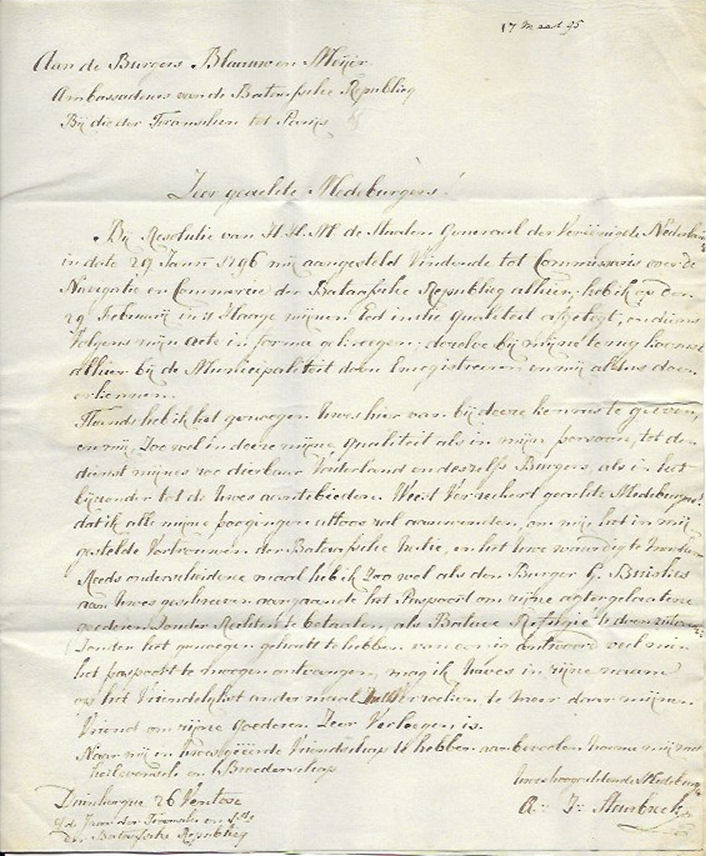 17 Maart 95
Aan de Burgers Blaauw en Meijer
Ambassadeurs van de Bataafsche Republicq
Bij die der Franschen tot Parijs
Zeer geachte Medeburgers!
Bij Resolutie van H. H. M. de Staaten Generaal der Vereenigde Nederlan
in date 29 Janu 1796 mij aangesteld Vindende tot Commissaris over de
Navigatie en Commercie der Bataafsche Republicq alhier, heb ik op den
29 Februarij in 's Haage mijnen Eed in die Qualiteit afgelegt, en
Volgens mijn acte in forma gekreegen; dezelve bij mijne terug komst
alhier bij de Municipaliteit doen Enregistreeren en mij als dus doen
erkennen.
Thands heb ik het genoegen Uwes hier van bij deeze kennis te geeven,
en mij, Zoo wel in deeze mijne Qualiteit als in mijn persoon, tot den
dienst mijnes zoo dierbaar Vaderland en deszelfs Burgers, als in het
bijzonder tot de Uwes aantebieden. Weest Verzekert geachte Medeburgers!
dat ik alle mijne poogingen altoos zal aanwenden, om mij het in mij
gestelde Vertrouwen der Bataafsche Natie, en het Uwe waardig te
Reeds onderscheidene maal heb ik Zoo wel als den Burger G.
aan Uwes geschreeven aangaande het Paspoort om zijne agtergelaatene
goederen Zonder Rechten te betaalen, als Bataave Refugié te doen
Zonder het genoegen gehadt te hebben van eenig antwoord veel min
het paspoort te moogen ontvangen, mag ik Uwes in zijne naam
op het Vriendelijkst andermaal Verzoeken, te meer daar mijnen
Vriend om zijne goederen Zeer Verleegen is.
Naar mij in Uwes geëerde Vriendschap te hebben aanbevolen noeme mij met
heilwensch en Broederschap
Uwes hoogachtende Medeburger
Duinkerque 26 Ventose
4de Jaar der Fransche en 2de
der Bataafsche Republicq
A: J: